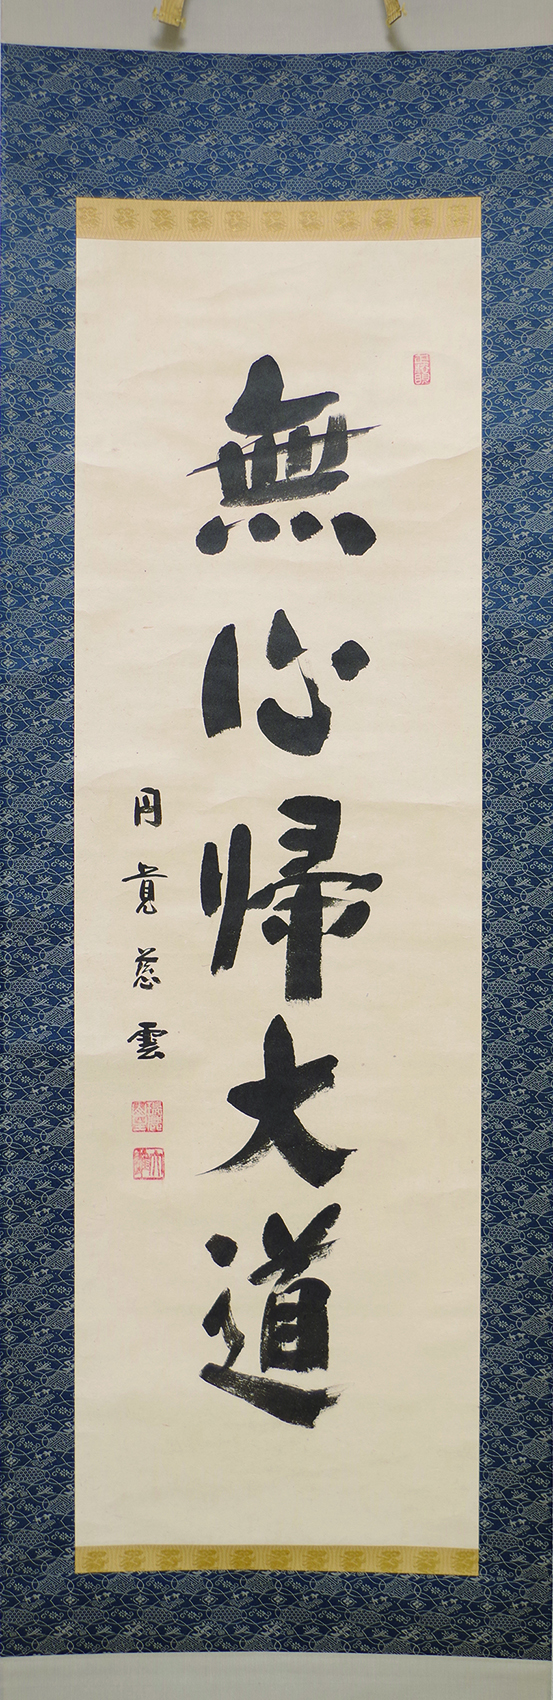 無心帰大道
円覚慈雲